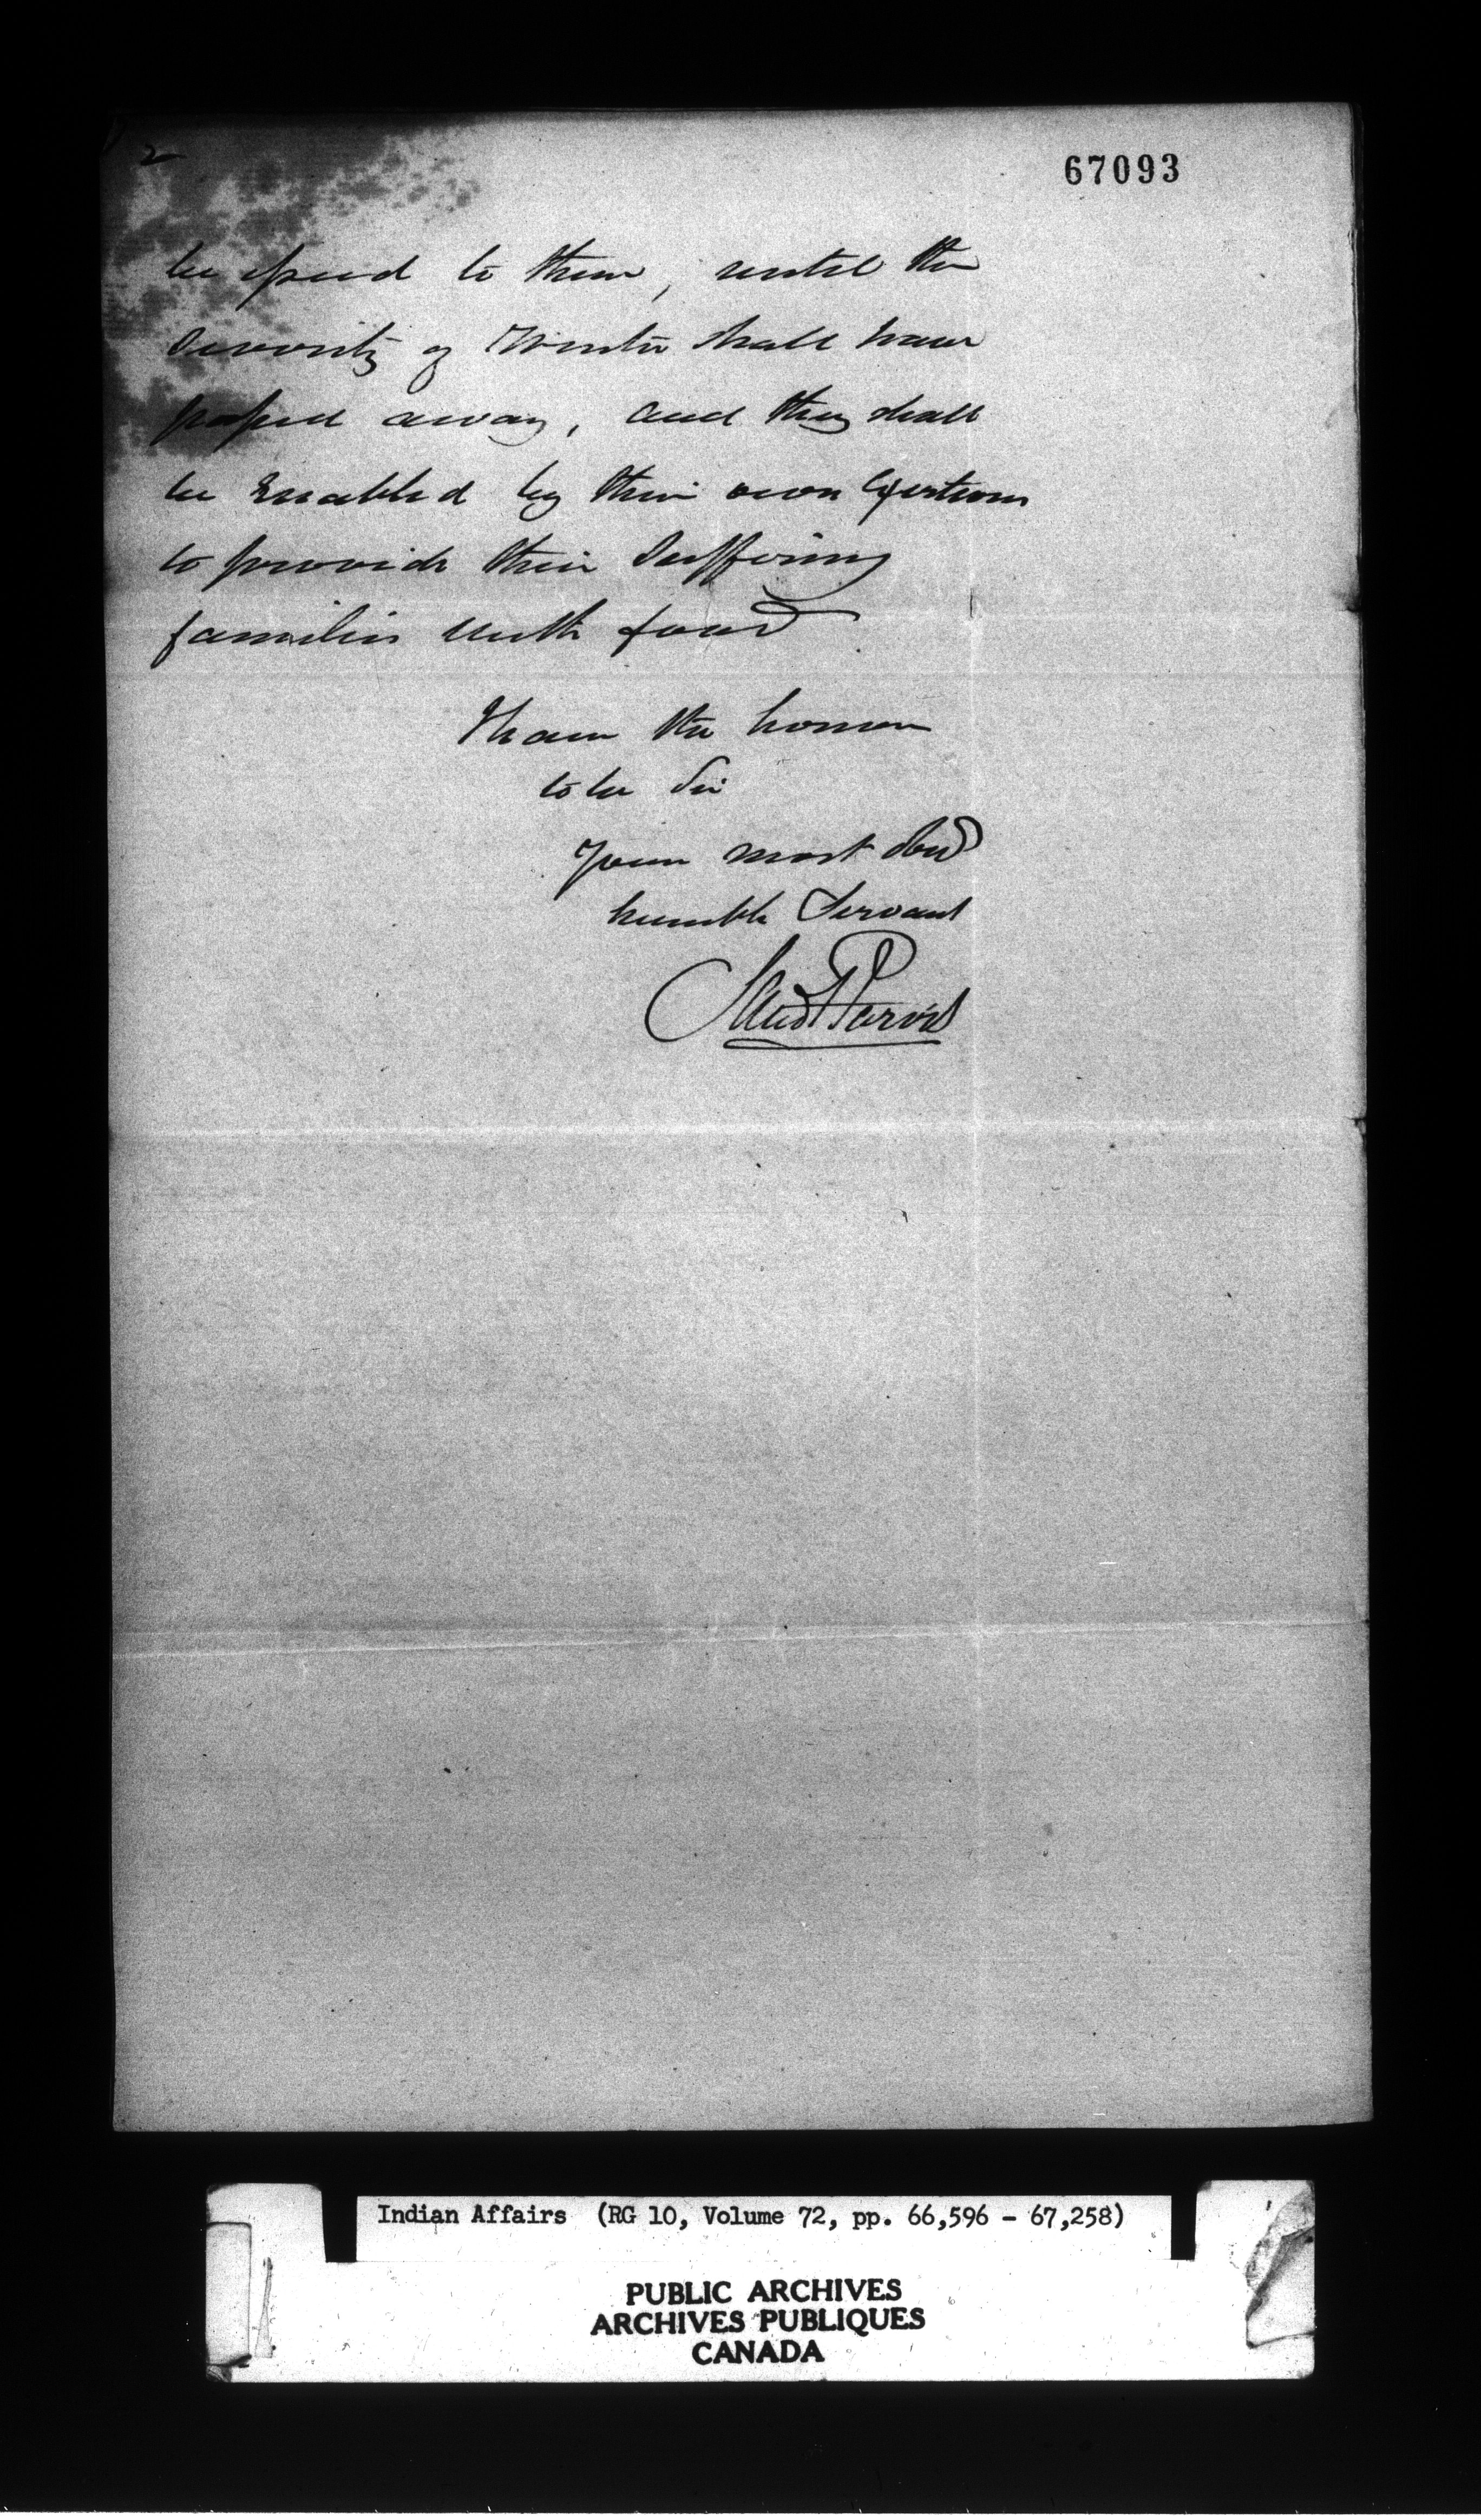 2
67093
be issued to them, until the
Severity of Winter shall have
passed away, and they shall
be Enabled by their own Exertions
to provide their Suffering
families with food
I have the honor
to be Sir
Your most obed
humble Servant
Jarvis
Indian Affairs (RG 10, Volume 72, pp. 66,596 - 67,258)
PUBLIC ARCHIVES
ARCHIVES PUBLIQUES
CANADA